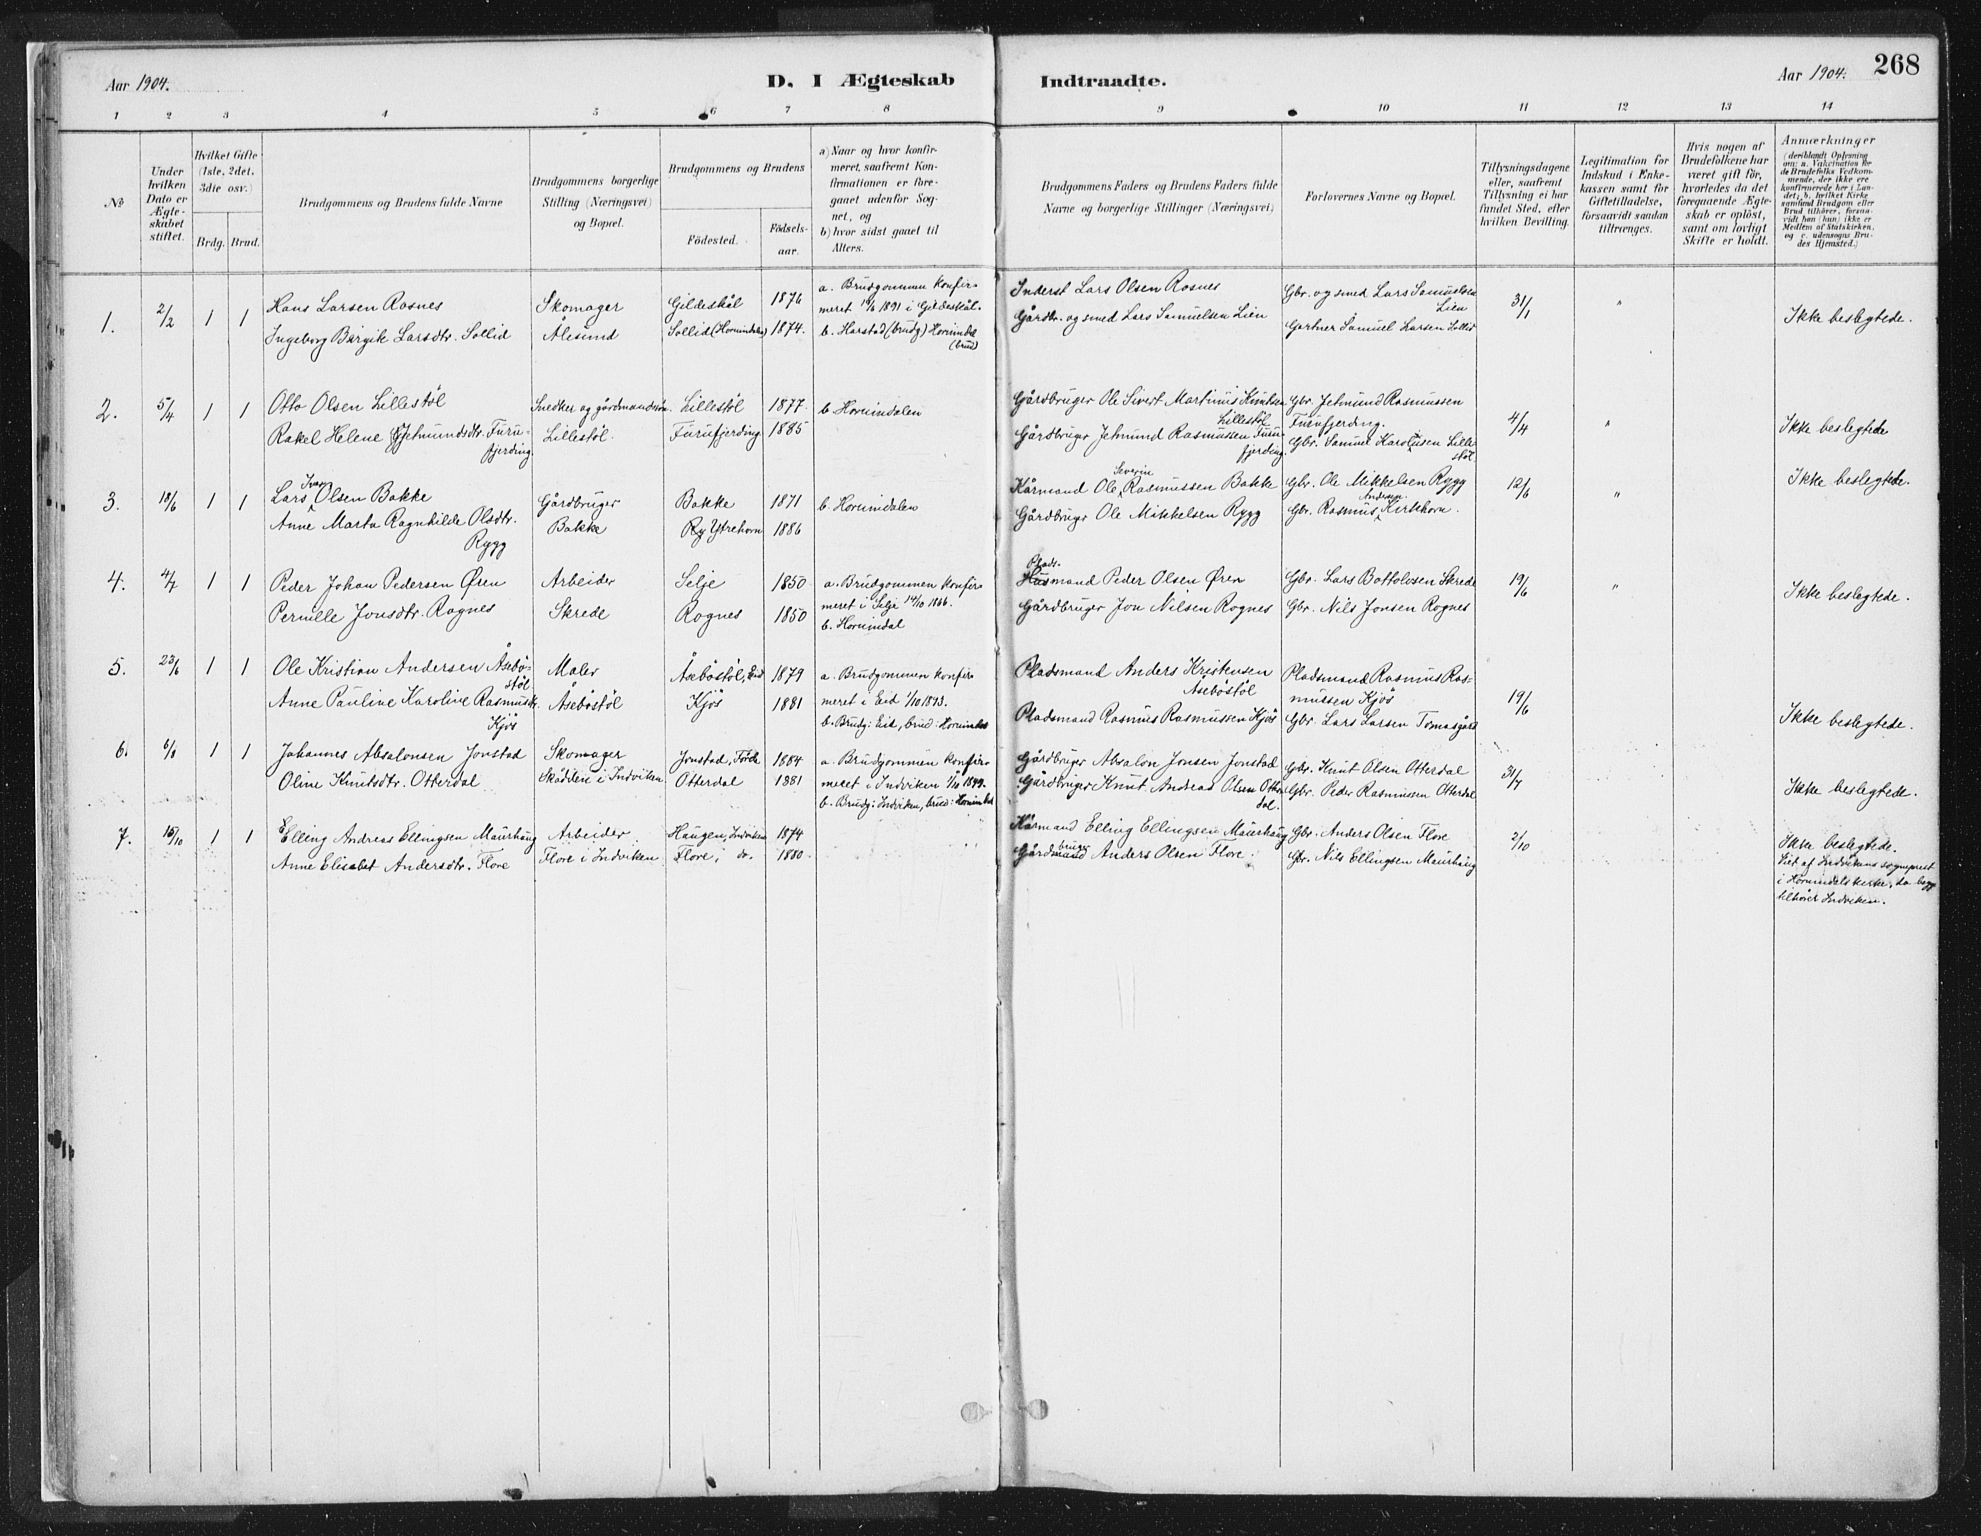 Aar 1904.
D. I Ægteskab Indtraadte.
Aar 1904. 268
1 2 3 4 5 6 7 8 9 10 11 12 13 14
No
Under hvilken Dato er Ægteskabet stiftet.
Hvilket Gifte (1ste, 2det, 3die osv.)
Brdg. Brud.
Brudgommens og Brudens fulde Navne
Brudgommens borgerlige Stilling (Næringsvei) og Bopæl.
Brudgommens og Brudens
Födested.
Födselsaar.
a) Naar og hvor konfirmeret, saafremt Konfirmationen er foregaaet udenfor Sognet, og
b) hvor sidst gaaet til Alters.
Brudgommens Faders og Brudens Faders fulde Navne og borgerlige Stillinger (Næringsvei)
Forlovernes Navne og Bopæl.
Tillysningsdagene eller, saafremt Tillysning ei har fundet Sted, efter hvilken Bevilling.
Legitimation for Indskud i Enkekassen samt for Giftetilladelse, forsaavidt saadan tiltrænges.
Hvis nogen af Brudefolkene har været gift før, hvorledes da det foregaaende Ægteskab er opløst, samt om lovligt Skifte er holdt.
Anmærkninger
(deriblandt Oplysning om: a. Vakcination for de Brudefolks Vedkommende, der ikke ere konfirmerede her i Landet; b. hvilket Kirkesamfund Brudgom eller Brud tilhører, forsaavidt han (hun) ikke er Medlem af Statskirken, og c. udensogns Brudes Hjemsted.)
1. 2/2 1 1 Hans Larsen Rosnes Skomager Gildeskål 1876 a. Brudgommen konfir-
meret 1891 i Gildeskål.
Ingeborg Birgit Larsdtr. Sollid Ålesund Sollid (Hornindalen) 1874. b. Harstad (brudg) Hornindal (brud)
Inderst Lars Olsen Rosnes Gbr. og smed Lars Samuelsen Lien 31/1 "
Gårdbr. og smed Lars Samuelsen Lien Gartner Samuel Larsen Sollid Ikke beslegtede.
2. 5/4 1 1 Otto Olsen Lillestøl Snedker og gårdmandssøn Lillestøl 1877. b. Hornindalen
Rakel Helene Jetmundsdtr. Furufjerding Lillestøl. Furufjerding 1885
Gårdbruger Ole Sivert Martinus Knutsen Lillestøl Gbr. Jetmund Rasmussen Furufjerding. 4/4 "
Gårdbruger Jetmund Rasmussen Furufjerding. Gbr. Samuel Karolusen Lillestøl Ikke beslegtede
3. 18/6 1 1 Lars Ivar Olsen Bakke Gårdbruger Bakke 1871 b. Hornindalen
Anne Marta Ragnhilde Olsdtr. Rygg Bakke Ry Ytrehorn 1886
Kårmand Ole Severin Rasmussen Bakke Gbr. Ole Mikkelsen Rygg 12/6 " Ikke beslegtede.
Gårdbruger Ole Mikkelsen Rygg Gbr. Rasmus Andersen Kirkhorn.
4. 4/7 1 1 Peder Johan Pedersen Øren Arbeider Selje 1850 a. Brudgommen konfir-
meret i Selje 14/10 1866.
Pernille Jonsdtr. Rognes Skrede Rognes 1850 b. Hornindal
Pladsmand Peder Olsen Øren Gbr. Lars Bottolvsen Skrede 19/6 "
Gårdbruger Jon Nilsen Rognes Gbr. Nils Jonsen Rognes Ikke beslegtede.
5. 23/6 1 1 Ole Kristian Andersen Åsebøstøl Maler Åsebøstøl, Eid 1879 a. Brudgommen konfir-
meret i Eid 1/10 1893.
Anne Pauline Karoline Rasmusdtr. Kjøs Åsebøstøl Kjøs 1881 b. Brudg: Eid, brud: Hornindal
Pladsmand Anders Kristensen Åsebøstøl Pladsmand Rasmus Rasmussen Kjøs 19/6
Pladsmand Rasmus Rasmussen Kjøs Gbr. Lars Larsen Tomasgård Ikke beslegtede.
6. 6/8 1 1 Johannes Absalonsen Jonstad Skomager Jonstad, Førde 1884 a. Brudgommen konfir-
meret i Indviken 1/10 1899.
Oline Knutsdtr. Otterdal Skådden i Indviken Otterdal 1881 b. Brudg: Indviken, brud: Hornindal
Gårdbruger Absalon Jonsen Jonstad Gbr. Knut Olsen Otterdal 31/7
Gårdbruger Knut Andreas Olsen Otterdal. Gbr. Peder Rasmussen Otterdal Ikke beslegtede.
7. 15/10 1 1 Elling Andreas Ellingsen Maurhaug Arbeider Haugen, Indviken 1874
Anne Elisabet Andersdtr. Flore Flore i Indviken Flore, do. 1880
Kårmand Elling Ellingsen Maurhaug Gbr. Anders Olsen Flore 2/10 Ikke beslegtede.
Gårdbruger Anders Olsen Flore. Gbr. Nils Ellingsen Maurhaug Viet af Indvikens sogneprest
i Hornindals kirke, da begge
tilhører Indviken.